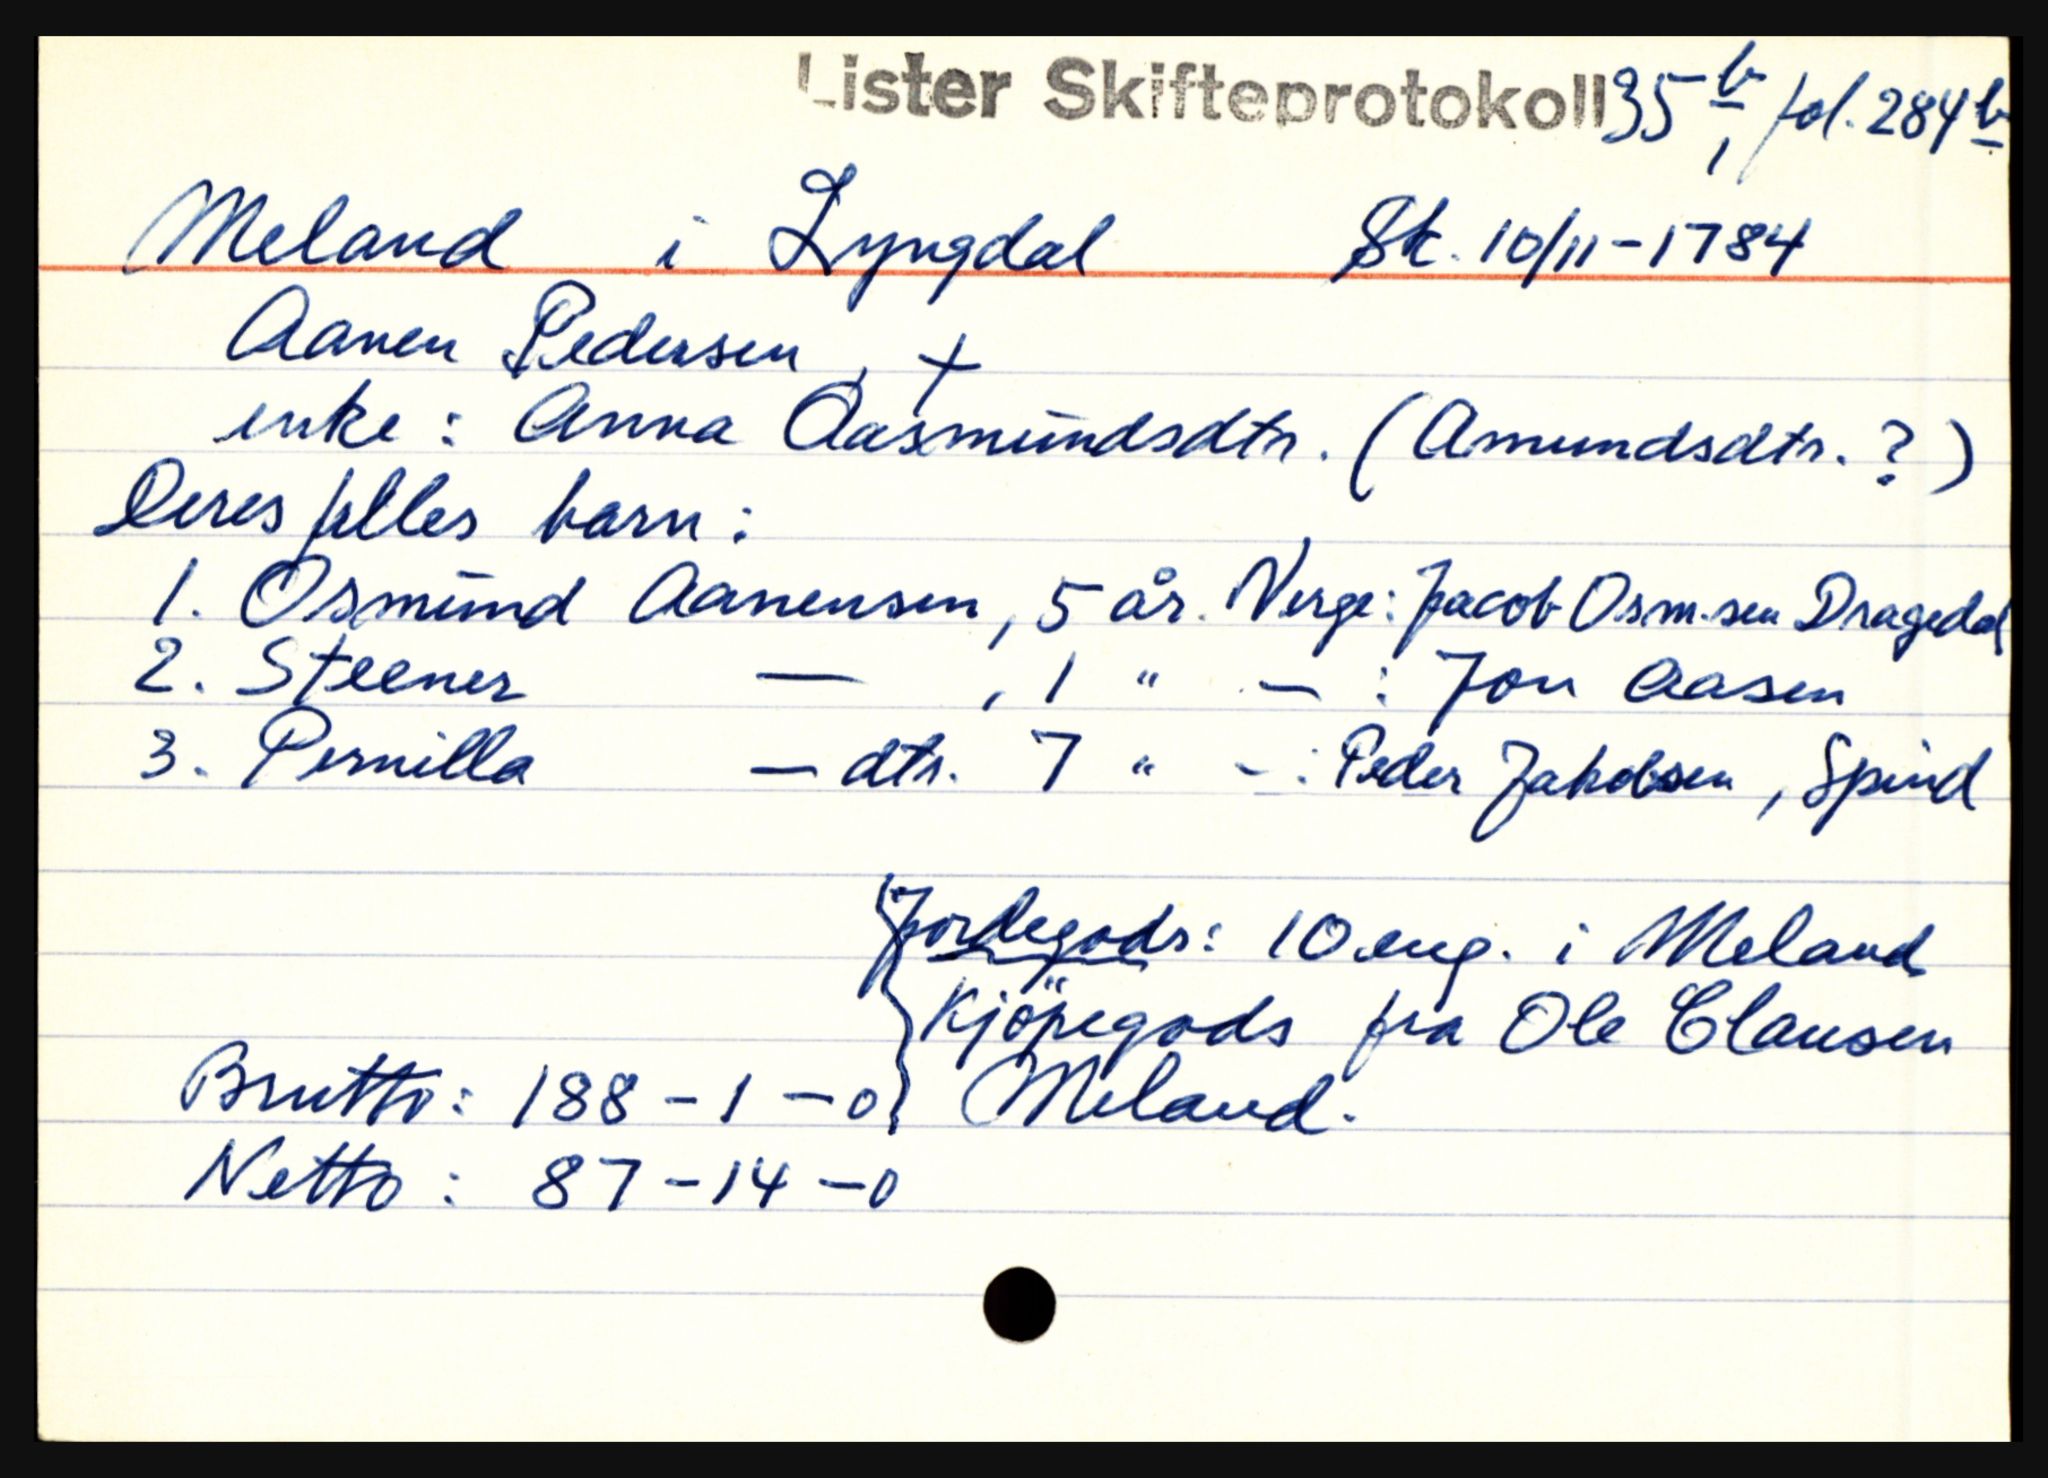 Lister Skifteprotokoll 35 b, fol. 284 b
Meland i Lyngdal Sk. 10/11-1784
Aanen Pedersen, +
enke: Anna Aasmundsdtr. (Amundsdtr.?)
Deres felles barn:
1. Osmund Aanensen, 5 år. Verge: Jacob Osm.sen Dragedal
2. Steener — , 1 " — : Jon Aasen
3. Pernilla — dtr. 7 " - : Peder Jakobsen, Spind
Jordegods: 10 eng. i Meland
Kjöpegods fra Ole Clausen
Brutto: 188 - 1 - 0 } Meland.
Netto: 87 - 14 - 0